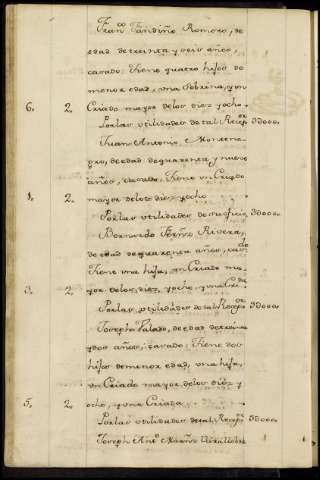 Fran.co Fandiño Romero, de
edad de treinta y seis años,
casado: Tiene quatro hijos de
menor edad, una Sobrina, y un
6. 2. Criado mayor de los diez y ocho.
Por las utilidades de tal Recep.or 3000.
Juan Antonio, Montene-
gro, de edad de quarenta, y nueve
años, casado. Tiene un Criado
1. 2. mayor de los diez y ocho
Por las utilidades de su oficio 3000.
Bernardo Rivera,
de edad de quarenta años, casdo
Tiene una hija, un Criado ma-
3. 2. yor de los diez, y ocho, y una
Por las utilidades de tal Recep.or 3000.
Joseph Palado, de edad de treinta
y dos años, casado: Tiene dos
hijos de menor edad, una hija,
un Criado mayor de los diez y
5. 2. ocho, y una Criada
Por las utilidades de tal Recep.or 3000.
Joseph Ant.o